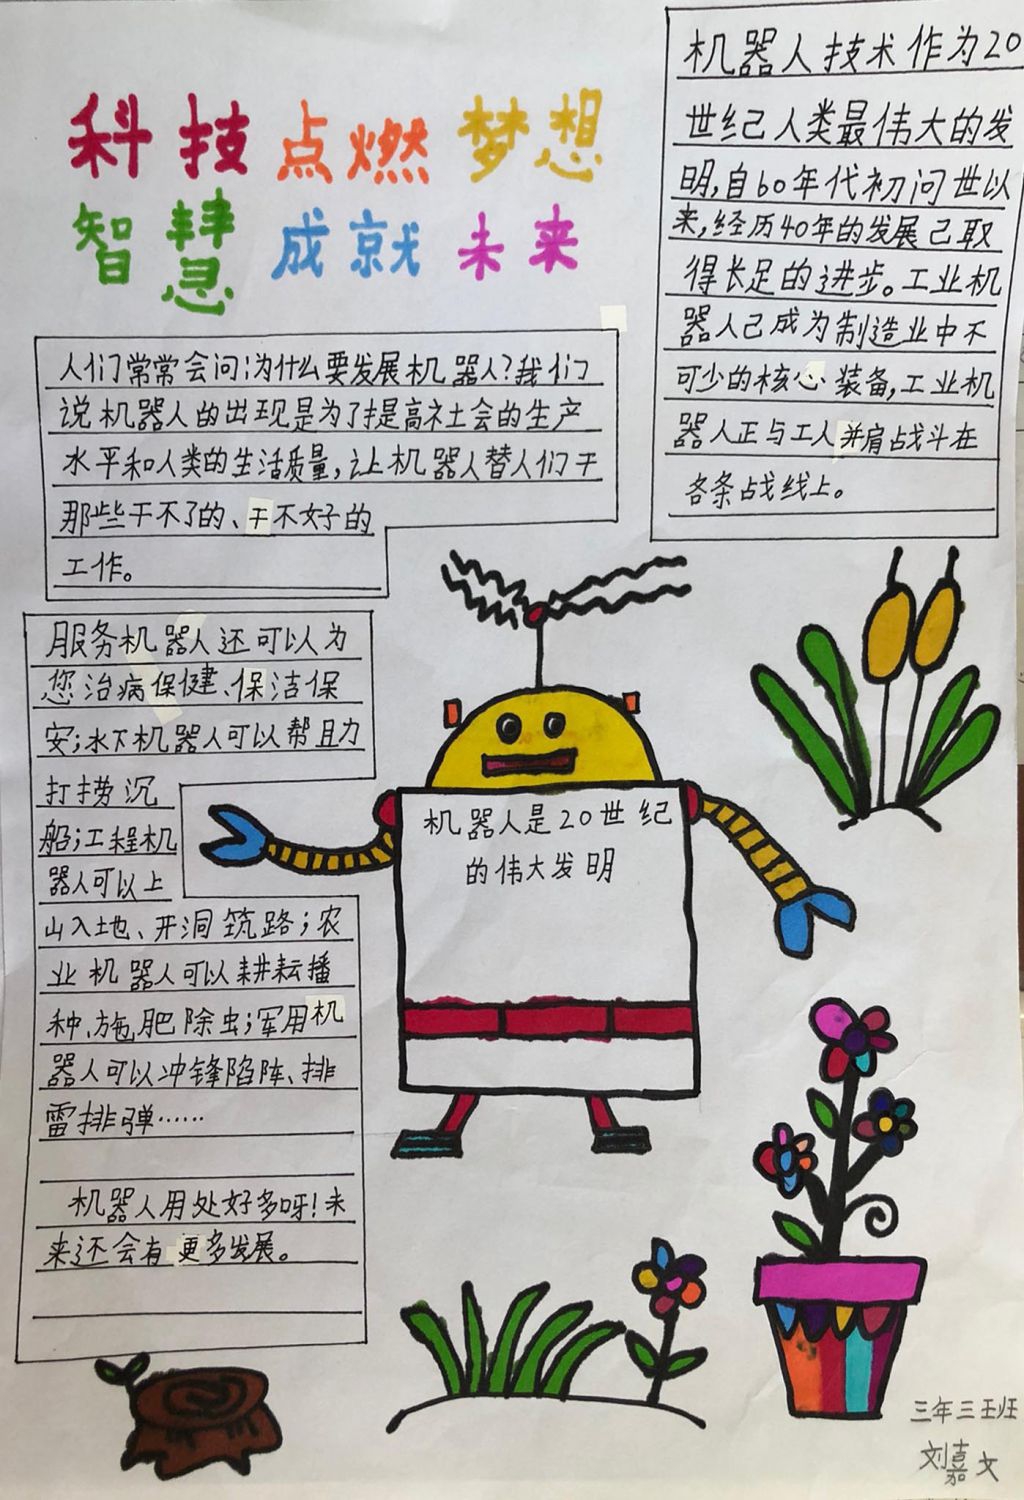 科技点燃梦想
智慧成就未来
机器人技术作为20
世纪人类最伟大的发
明,自60年代初问世以
来,经历40年的发展已取
得长足的进步。工业机
器人已成为制造业中不
可少的核心装备,工业机
器人正与工人并肩战斗在
各条战线上。
人们常常会问:为什么要发展机器人?我们
说机器人的出现是为了提高社会的生产
水平和人类的生活质量,让机器人替人们干
那些干不了的、干不好的
工作。
服务机器人还可以为
您治病保健、保洁保
安;水下机器人可以帮助
打捞沉
船;工程机
器人可以上
山入地、开洞筑路;农
业机器人可以耕耘播
种,施肥除虫;军用机
器人可以冲锋陷阵、排
雷排弹……
机器人用处好多呀!未
来还会有更多发展。
机器人是20世纪
的伟大发明
三年三班
刘嘉文